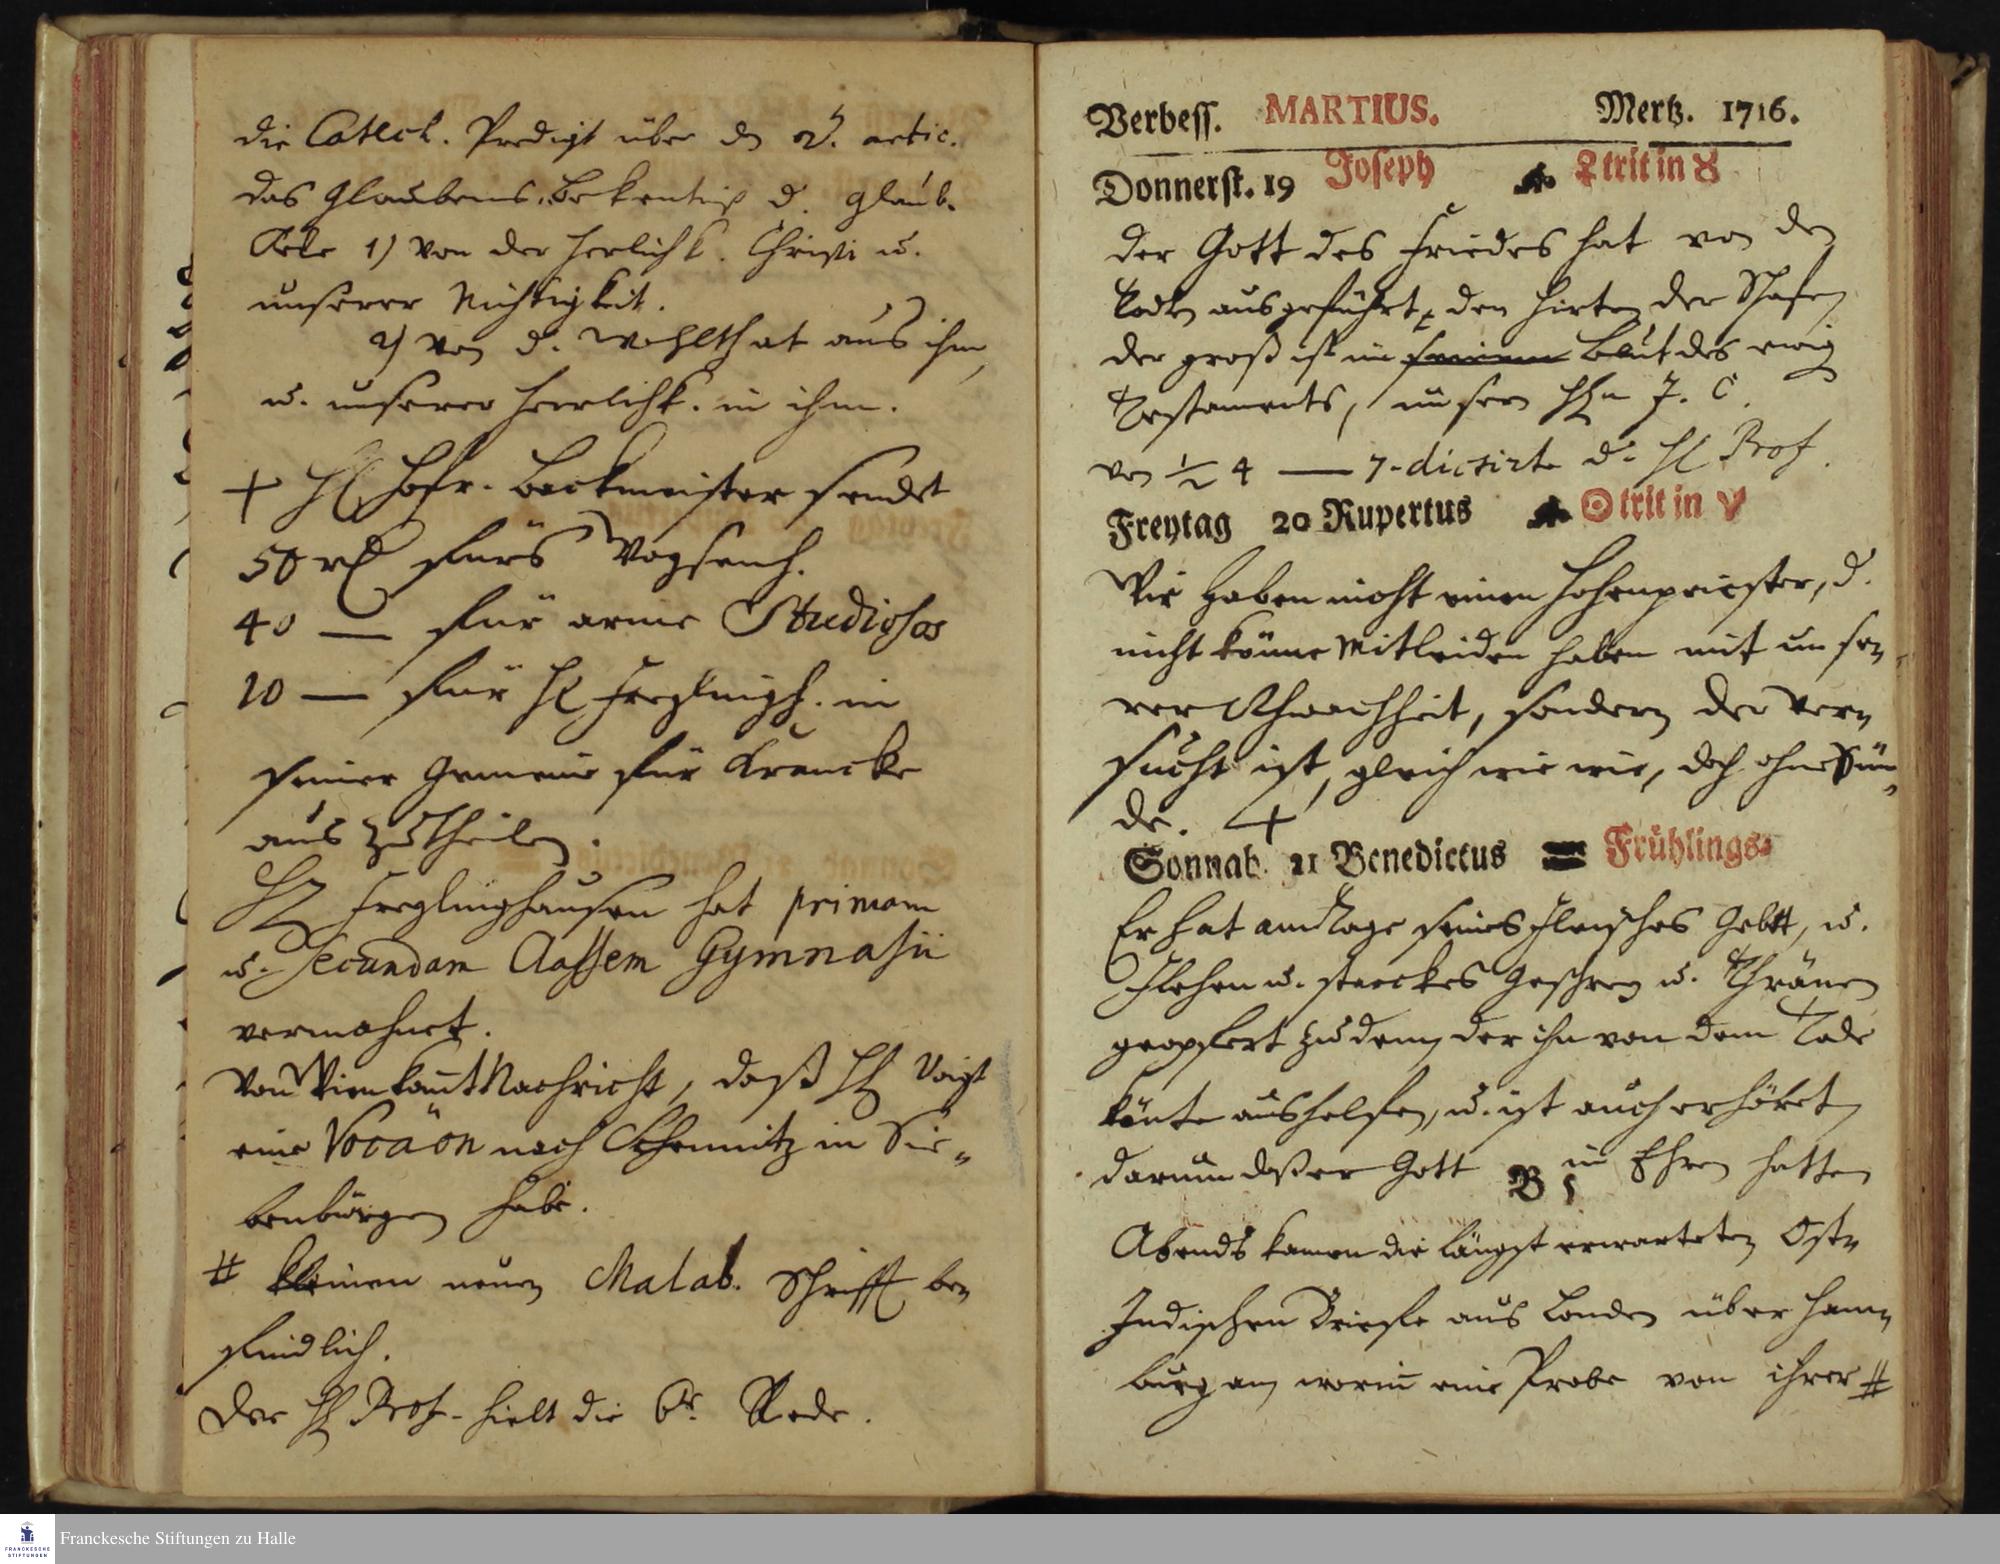 die Catech. Predigt über dn 2. artic.
das Glaubens-Bekentniß d. Glaub.
1) von der Herlichk. Christi u.
unserer Nichtigkeit.
2) von d. Wohlthat aus ihm,
u. unserer Herrlichk. in ihm.
+ H Hofr. Backmeister sendet
50 rl fürs Waysenh.
40 — für arme Studiosos
10 — für H Freylingh. in
seiner Gemeine für Krancke
aus zutheilen.
H Freylinghausen hat primam
u. secundam Classem Gymnasii
vermahnet.
Von Wien kamt Nachricht, daß H Voigt
eine Vocaon nach Schemnitz in Sie-
benbürgen habe.
# kleinen neuen Malab. Schrifft be-
findlich.
Der H Prof. hielt die 6te Rede.
Verbess. MARTIUS. Mertz. 1716.
Donnerst. 19 Joseph ♀ trit in ♉
Der Gott des Friedes hat von den
Todten ausgeführt, den Hirten der Schafe
der groß ist im Blut des ewig
Testaments, unsern HEn J. C.
von ½ 4 — 7 dictirte d. H Prof.
Freytag 20 Rupertus ☉ trit in ♈
Wir haben nicht einen Hohenpriester, d.
nicht könne Mitleiden haben mit unse-
rer Schwachheit, sondern der ver-
sucht ist, gleich wie wir, doch ohne Sün-
de. +
Sonnab. 21 Benedictus Frühlings-
Er hat am Tage seines Fleisches Gebet, u.
Flehen u. starckes Geschrey u. Thränen
geopfert zu dem, der ihn von dem Tode
könte aushelfen, u. ist auch erhöret
darum daß er Gott in Ehren hatte
B 5
Abends kamen die längst erwarteten Ost-
Indischen Briefe aus Londen über Ham-
burg an, worin eine Probe von ihrer #
Franckesche Stiftungen zu Halle
FRANCKESCHE
STIFTUNGEN